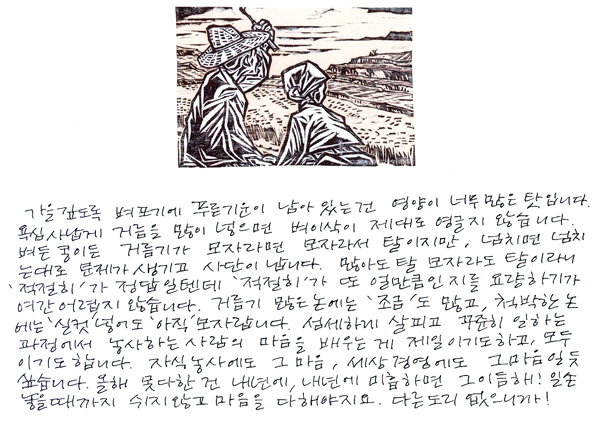 가을 깊도록 벼포기에 푸른기운이 남아 있는건 영양이 너무 많은 탓입니다.
욕심사납게 거름을 많이 넣으면 벼이삭이 제대로 영글지 않습니다.
벼든 콩이든 거름기가 모자라면 모자라서 탈이지만, 넘치면 넘치
는대로 문제가 생기고 사단이 납니다. 많아도 탈 모자라도 탈이라니
'적절히'가 정답일텐데 '적절히'가 또 얼만큼인지를 요량하기가
여간 어렵지 않습니다. 거름기 많은 논에는 '조금'도 많고, 척박한 논
에는 '실컷' 넣어도 '아직' 모자랍니다. 섬세하게 살피고 꾸준히 일하는
과정에서 농사하는 사람의 마음을 배우는게 제일이기도하고, 모두
이기도 합니다. 자식농사에도 그 마음, 세상경영에도 그마음일듯
싶습니다. 올해 못다한 건 내년에, 내년에 미흡하면 그 이듬해! 일손
놓을 때까지 쉬지않고 마음을 다해야지요. 다른도리 없으니까!